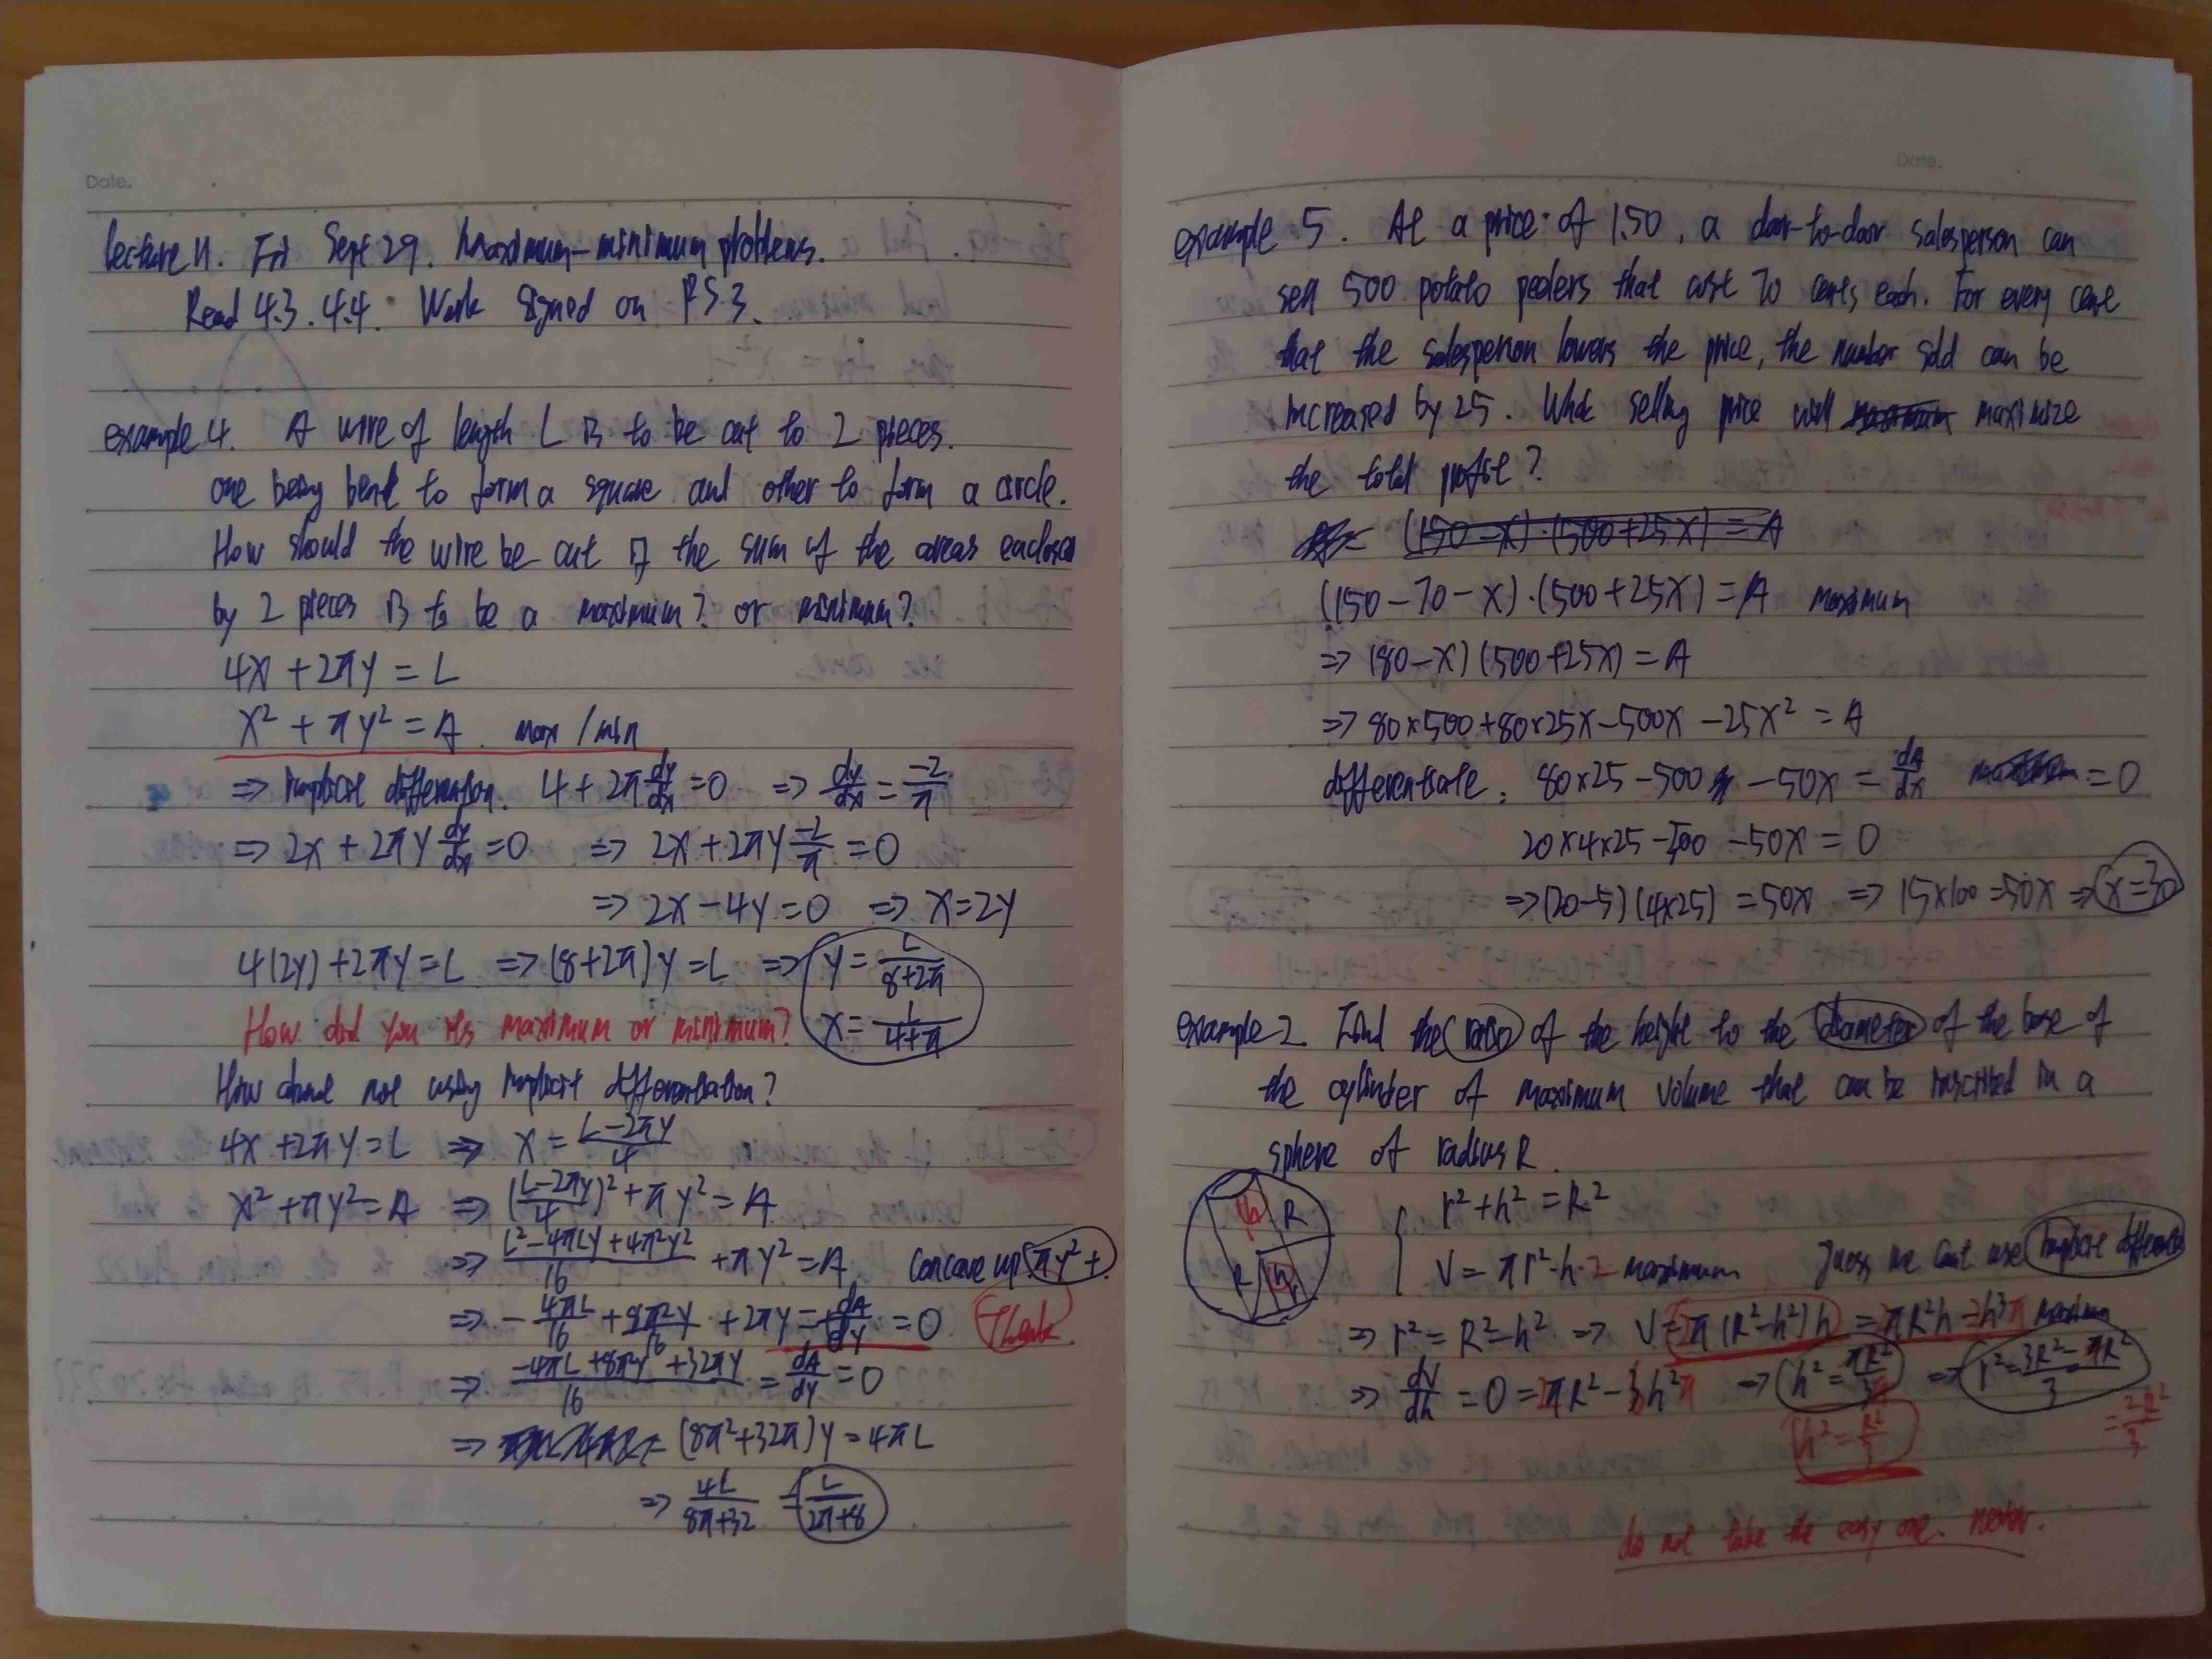 Date.
Lecture 11. Fri Sept 29. Maximum-minimum problems.
Read 4.3. 4.4. Work on PS3.
example 4. A wire of length L is to be cut to 2 pieces.
one being bent to form a square and other to form a circle.
How should the wire be cut if the sum of the areas enclosed
by 2 pieces is to be a maximum? or minimum?
4x + 2πy = L
x² + πy² = A max / min
⇒ implicit 4 + 2π dy/dx = 0 ⇒ dy/dx = -2/π
⇒ 2x + 2πy dy/dx = 0 ⇒ 2x + 2πy -2/π = 0
⇒ 2x - 4y = 0 ⇒ x = 2y
4(2y) + 2πy = L ⇒ (8+2π)y = L ⇒ y = L/(8+2π)
x = L/(4+π)
How did you its maximum or minimum?
How about not using implicit differentiation?
4x + 2πy = L ⇒ x = (L-2πy)/4
x² + πy² = A ⇒ ((L-2πy)/4)² + πy² = A
⇒ (L² - 4πLy + 4π²y²)/16 + πy² = A. concave up. πy² +.
⇒ - 4πL/16 + 8π²y/16 + 2πy = dA/dy = 0
⇒ (-4πL + 8π²y + 32πy)/16 = dA/dy = 0
⇒ (8π²+32π)y = 4πL
⇒ 4L/(8π+32) = L/(2π+8)
Date.
example 5. At a price of 1.50, a door-to-door salesperson can
sell 500 potato peelers that cost 70 cents each. For every cent
that the salesperson lowers the price, the number sold can be
increased by 25. What selling price will maximize
the total profit?
(150-x)·(500+25x) = A
(150-70-x)·(500+25x) = A maximum
⇒ (80-x)(500+25x) = A
⇒ 80×500+80×25x-500x-25x² = A
differentiate: 80×25-500-50x = dA/dx = 0
20×4×25-500-50x = 0
⇒ (20-5)(4×25) = 50x ⇒ 15×100=50x ⇒ x=30
example 2. Find the ratio of the height to the diameter of the base of
the cylinder of maximum volume that can be inscribed in a
sphere of radius R.
h R
R h r
r² + h² = R²
V = πr²·h·2 maximum Guess we can't use implicit
⇒ r² = R²-h² ⇒ V=2π(R²-h²)h = 2πR²h-2h³π maximum
⇒ dV/dh = 0 = 2πR² - 6h²π ⇒ h² = πR²/3π ⇒ r² = (3R²-πR²)/3
h² = R²/3
= 2R²/3
do not take the easy one.